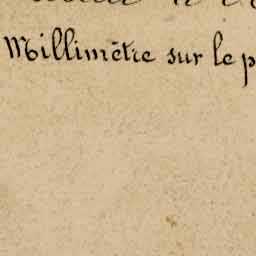 Millimètre sur le p